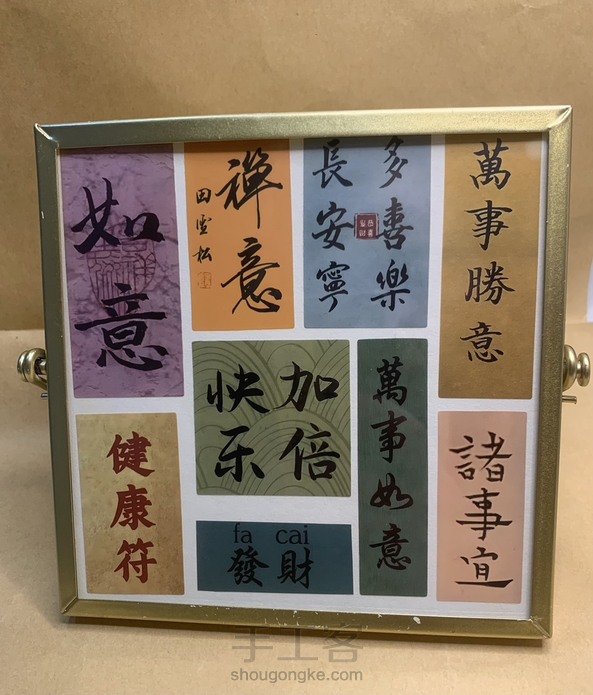 如意
禅意
田雪松
多喜樂
長安寧
萬事勝意
加倍
快乐
萬事如意
健康符
fa cai
發財
諸事宜
手工客
shougongke.com